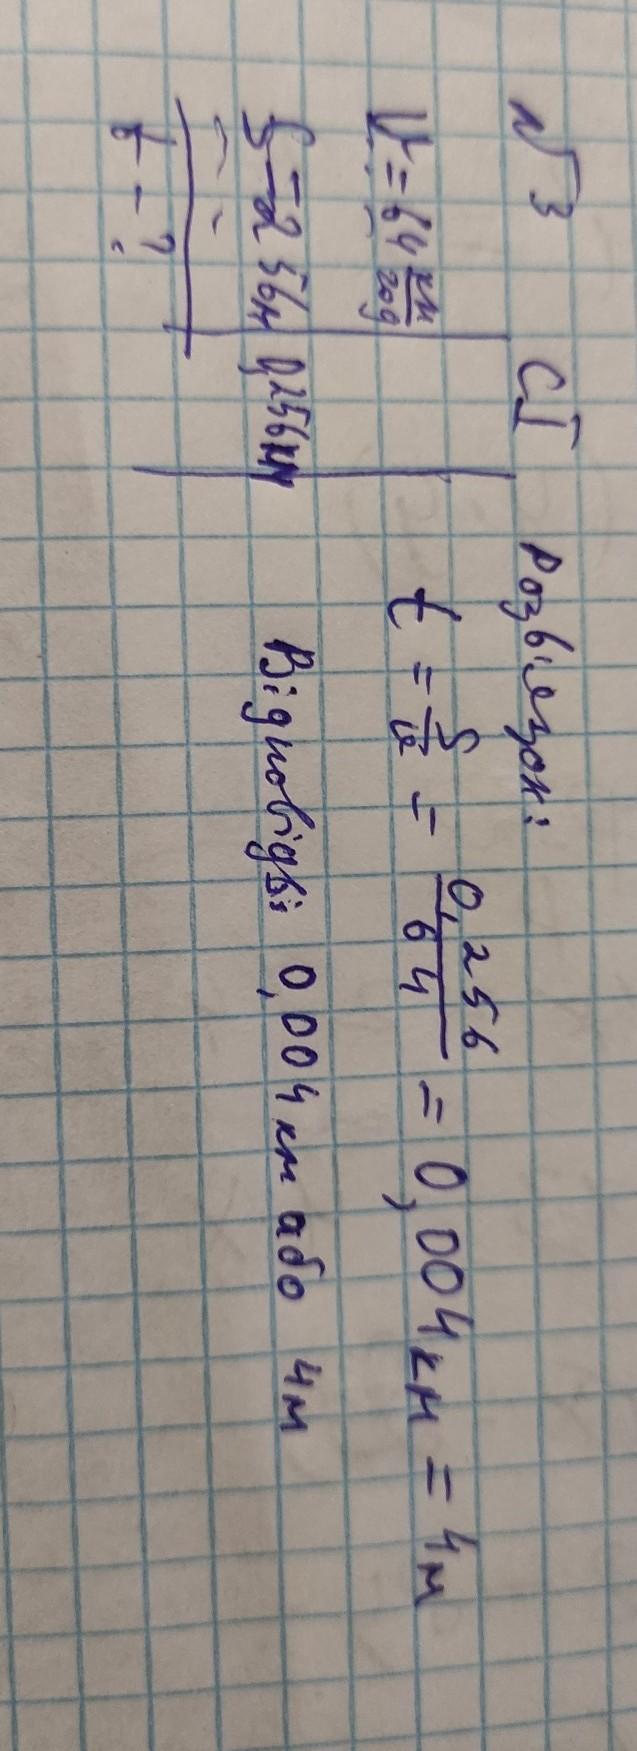 №3 СІ Розв'язок:
V = 64 км/год t = S/v = 0,256/64 = 0,004км = 4м
S = 256м 0,256км Відповідь: 0,004км або 4м
t - ?